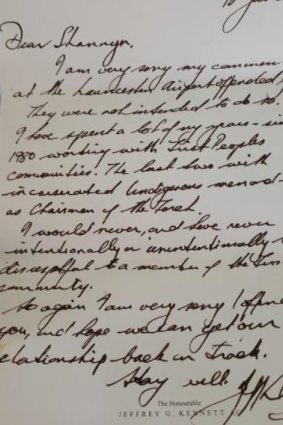 Dear Shannyn,
I am very sorry my commen
at the Launceston Airport offended
They were not intended to do so.
I have spent a lot of my years - sin
1980 working with First Peoples
communities. The last two with
incarcerated Indigenous men and -
as Chairman of the Torch.
I would never, and have never
intentionally or unintentionally
disrespectful to a member of the Firs
community.
So again I am very sorry I offen
you, and hope we can get our
relationship back on track.
Stay well.
The Honourable
JEFFREY G. KENNETT